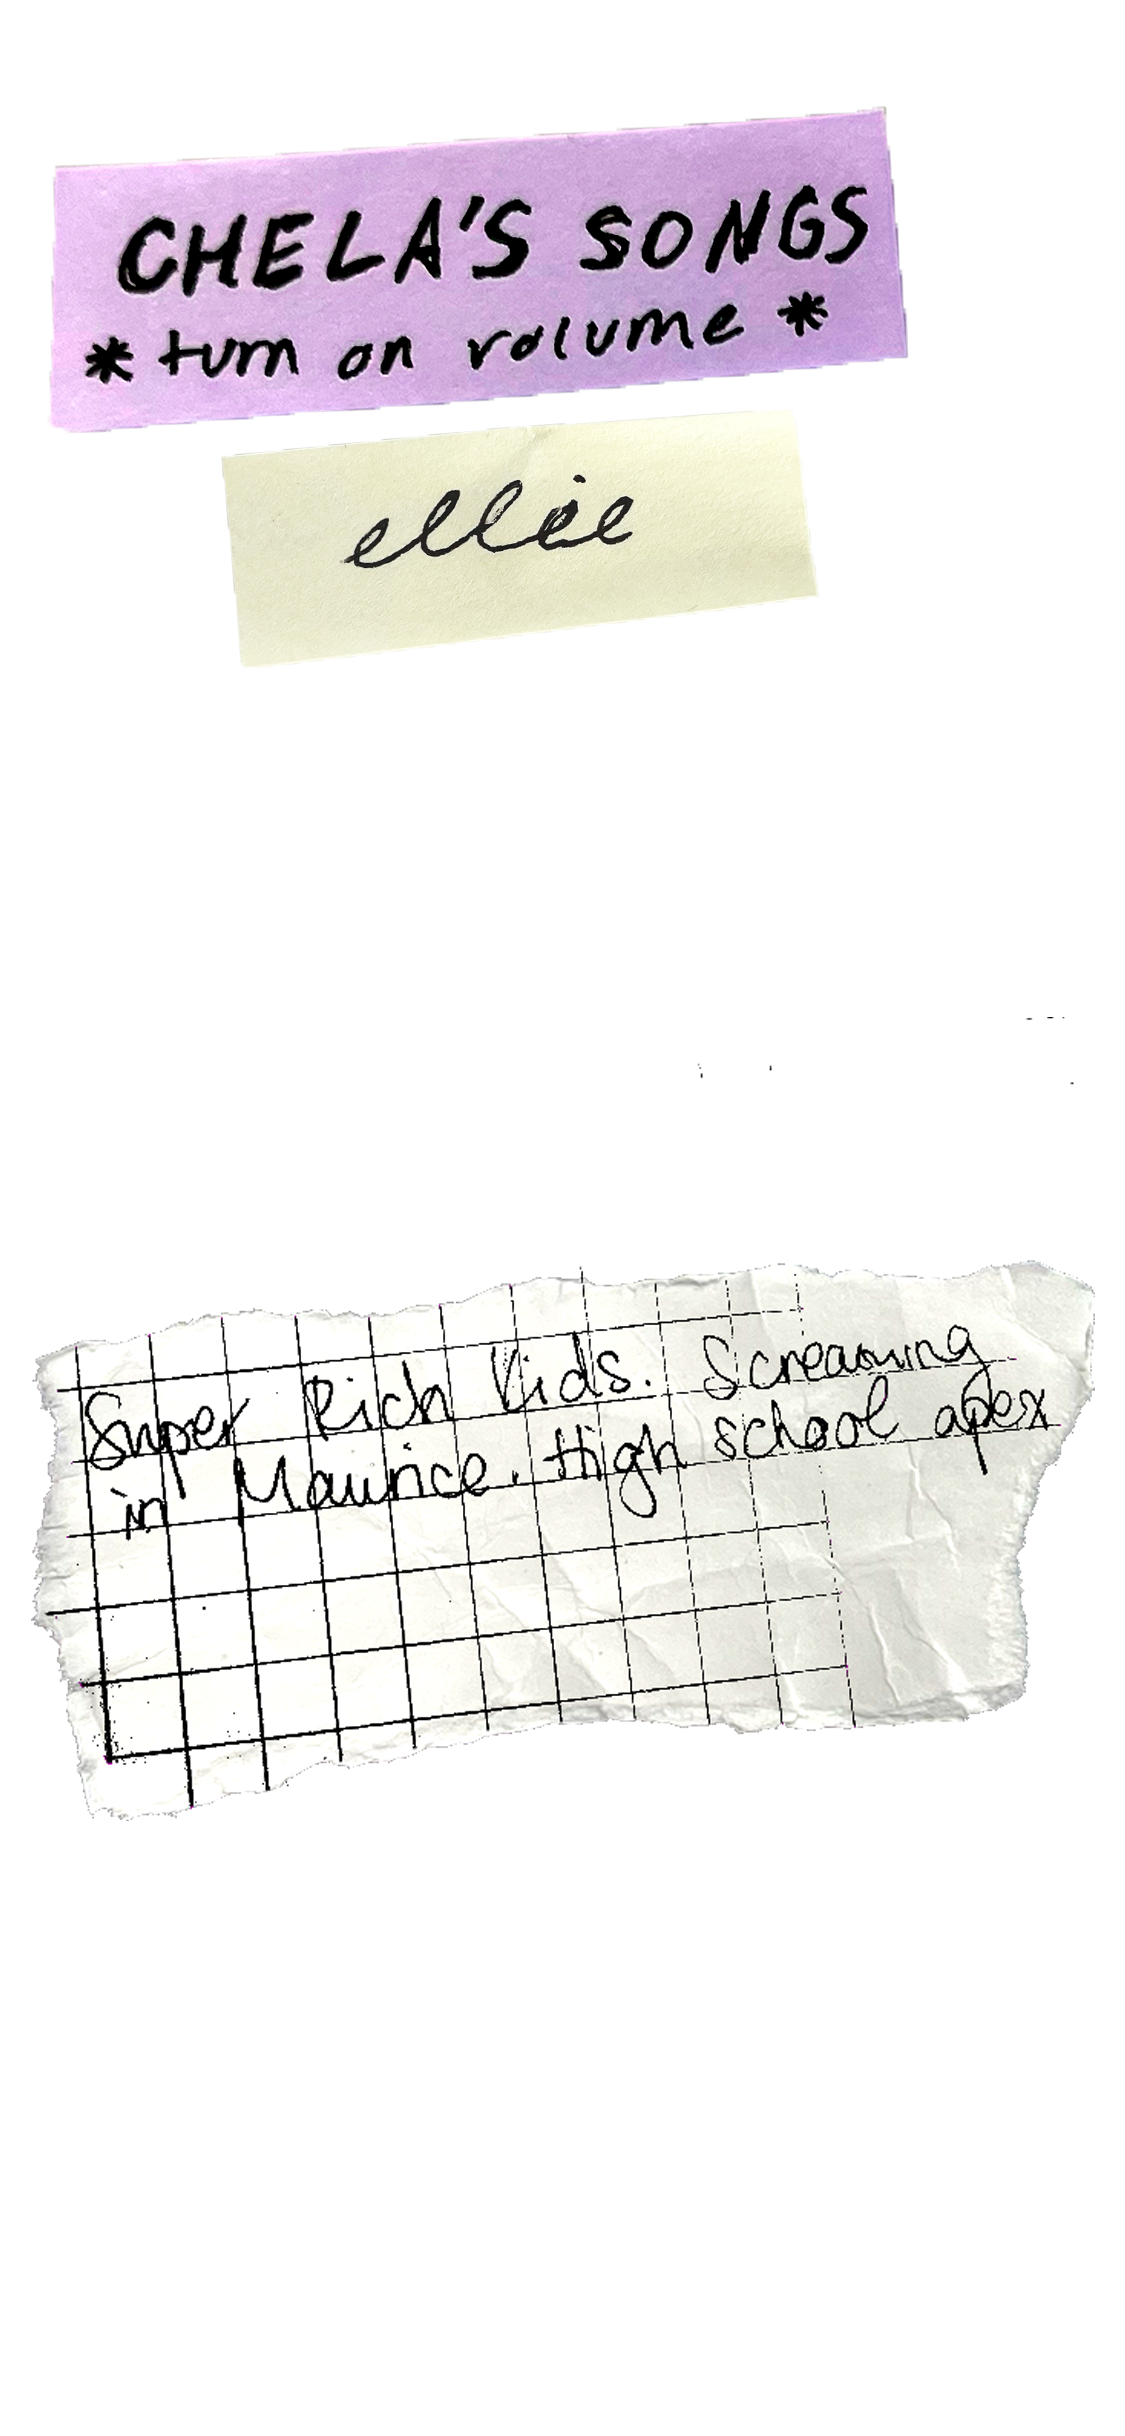 CHELA'S SONGS
* turn on volume *
ellie
Super Rich Kids. Screaming
in Maurice. High school apex